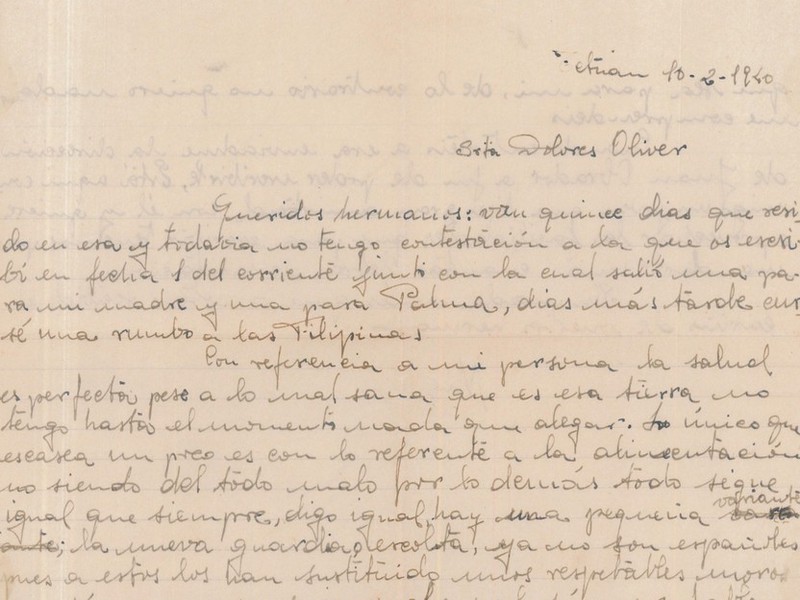 Tetuan 10-2-1940
Srta Dolores Oliver
Queridos hermanos: van quince dias que resi-
do en esa y todavia no tengo contestación a la que os escri-
bí en fecha 1 del corriente junto con la cual salió una pa-
ra mi madre y una para Palma, dias más tarde cur
sé una rumbo a las Filipinas
Con referencia a mi persona la salud
es perfecta pese a lo mal sana que es esa tierra no
tengo hasta el momento nada que alegar. Lo único que
escasea un poco es con lo referente a la alimentación
no siendo del todo malo por lo demás todo sigue
igual que siempre, digo igual, hay una pequeña variante
; la nueva guardia, o escolta, ya no son españoles
pues a estos los han sustituido unos respetables moros